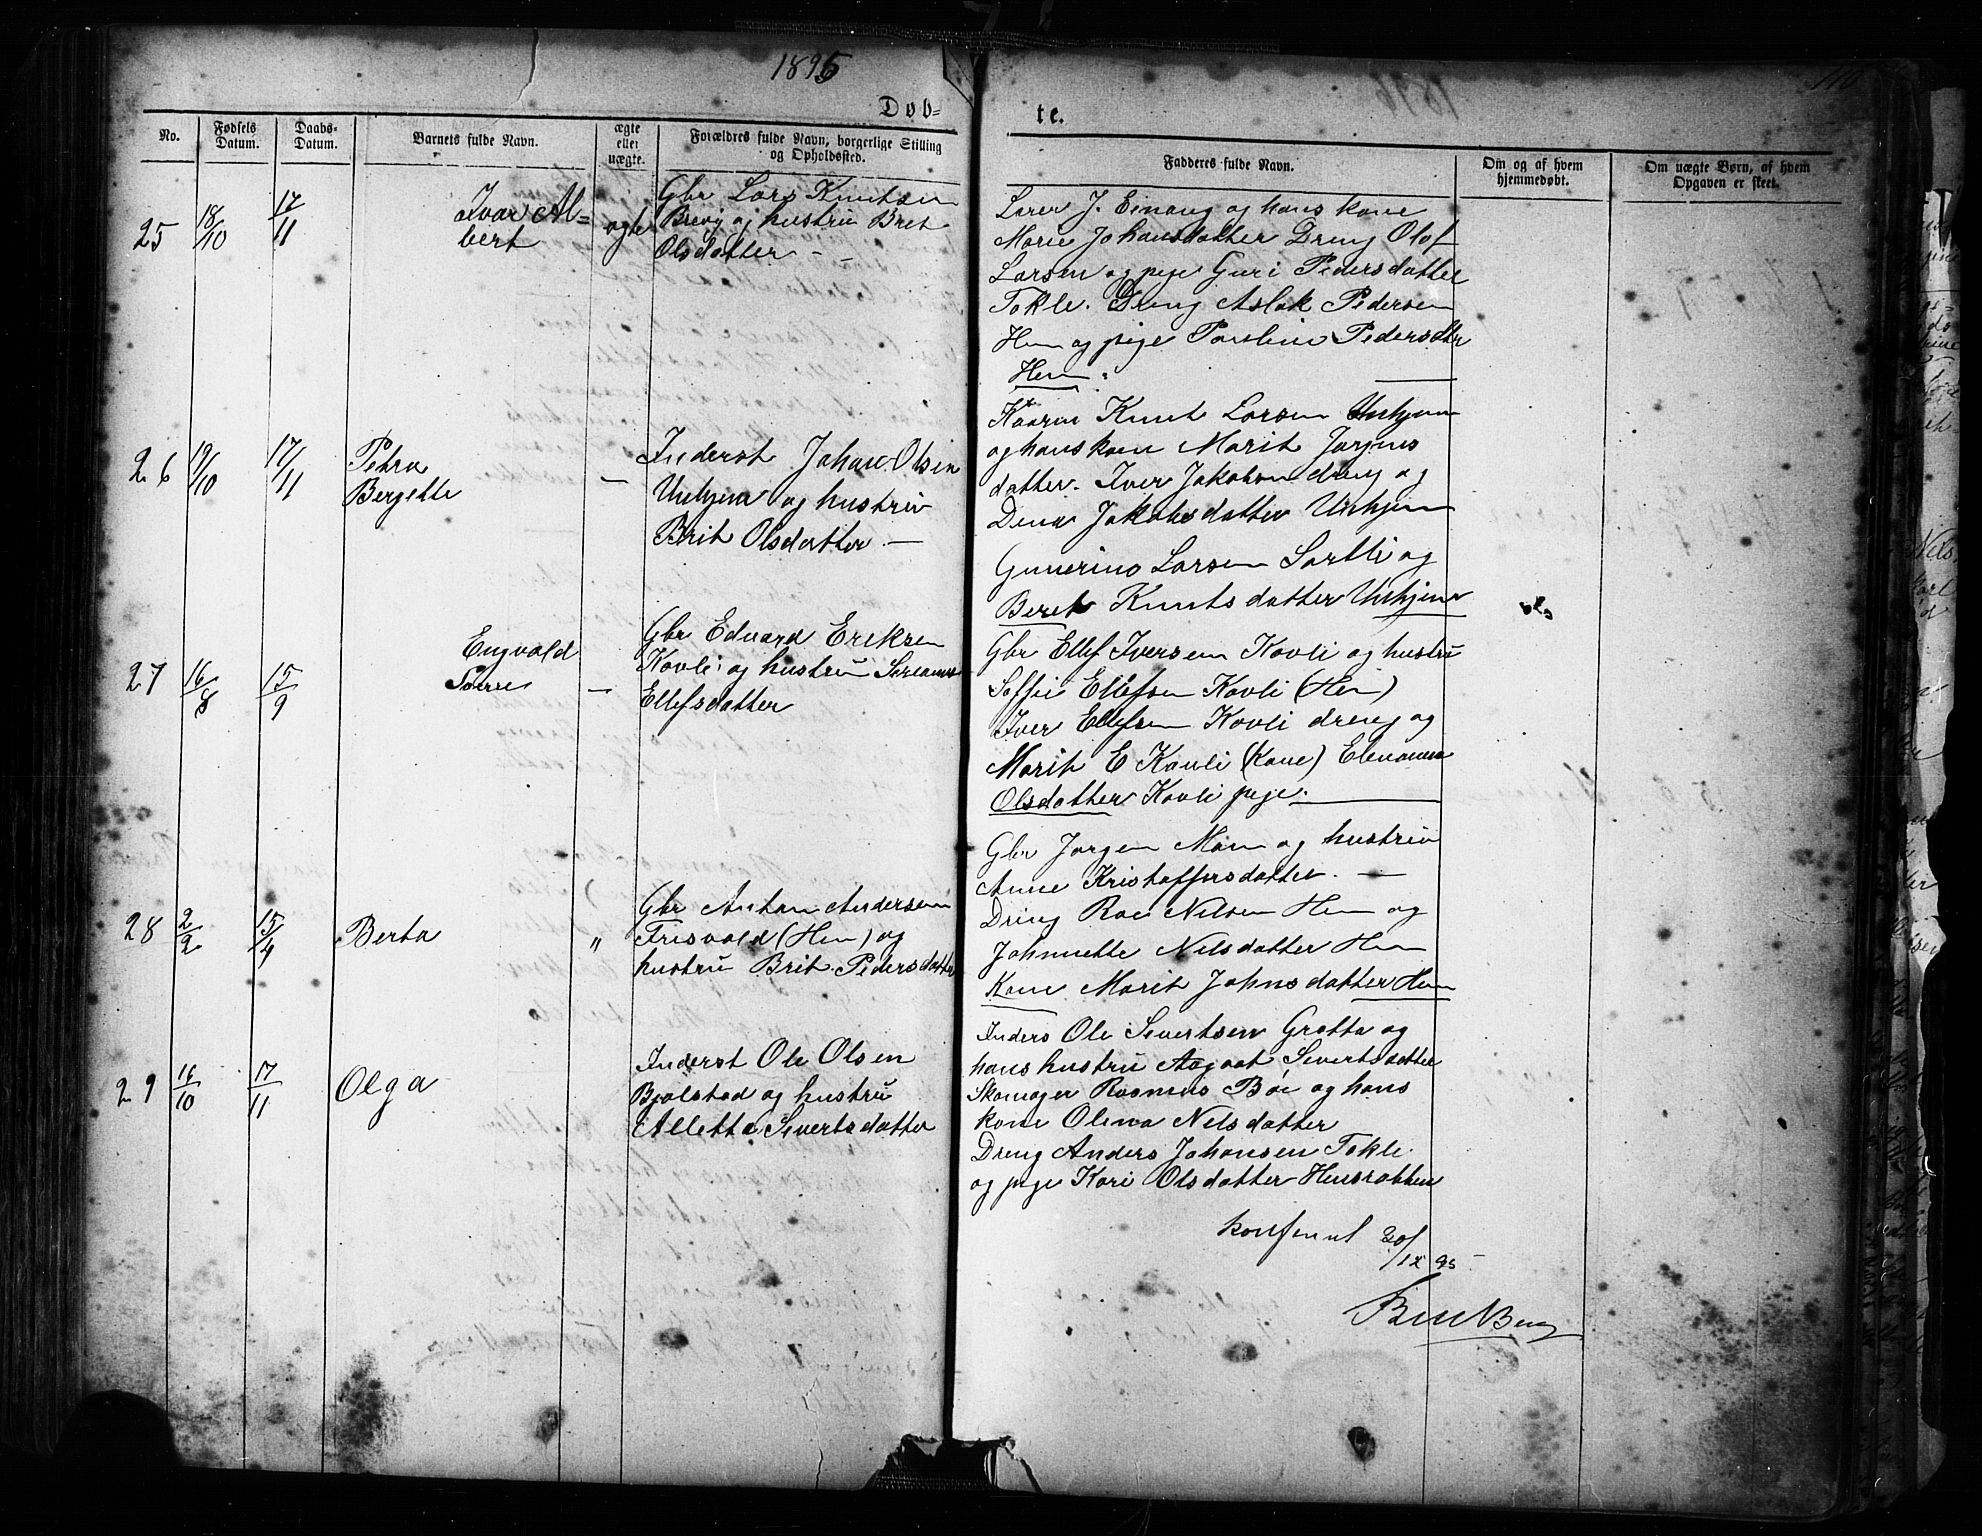 1895
110
Døb-
te.
No.
Fødsels Datum.
Daabs-Datum.
Barnets fulde Navn.
ægte eller uægte.
Forældres fulde Navn, borgerlige Stilling og Opholdssted.
Fadderes fulde Navn.
Om og af hvem hjemmedøbt.
Om uægte Børn, af hvem Opgaven er skeet.
25
18/10
17/11
Ivar Al-
bert
ægte
Gbr Lars Knutsen
og hustru Bret
Olsdatter - -
Lærer J. Einang og hans kone
Marie Johansdatter Dreng Olof
Larsen og pige Guri Pedersdatter
Tokle. Dreng Aslak Pedersen
Hen og pige Pedersdtr
Hen.
26
19/10
17/11
Petra
Bergette
—
Inderst Johan Olsen
Unhjem og hustru
Brit Olsdatter. —
Knut Larsen Unhjem
og hans kone Marit Jørgens
datter. Iver Jakobsen dreng og
Dena Jakobsdatter Unhjem
Gunerius Larsen Sartli og
Beret Knutsdatter Unhjem
27
16/8
15/9
Engvald
—
Gbr Edvard Eriksen
Kovli og hustru
Ellefsdatter
Gbr Ellef Iversen Kovli og hustru
Soffie Ellefsen Kovli (Hen)
Iver Ellefsen Kovli dreng og
Marit E Kovli (Kone)
Olsdatter Kovli pige.
28
2/2
15/4
Berta
"
Gbr Anton Andersen
Frisvold (Hen) og
hustru Brit Pedersdatter
Gbr Jørgen Moen og hustru
Anne Kristoffersdatter. —
Dreng Roe Nilsen Hen og
Johnette Nelsdatter Hen
Kone Marit Johnsdatter Hen
29
16/10
17/11
Olga
Inderst Ole Olsen
Bjølstad og hustru
Alletta Sivertsdatter
Inders Ole Sivertsen Grøtta og
hans hustru Aagaat Sivertsdatter
Skomager Rasmus Bøe og hans
kone Olena Nelsdatter
Dreng Anders Johansen Tokle
og pige Kari Olsdatter
20/12 95